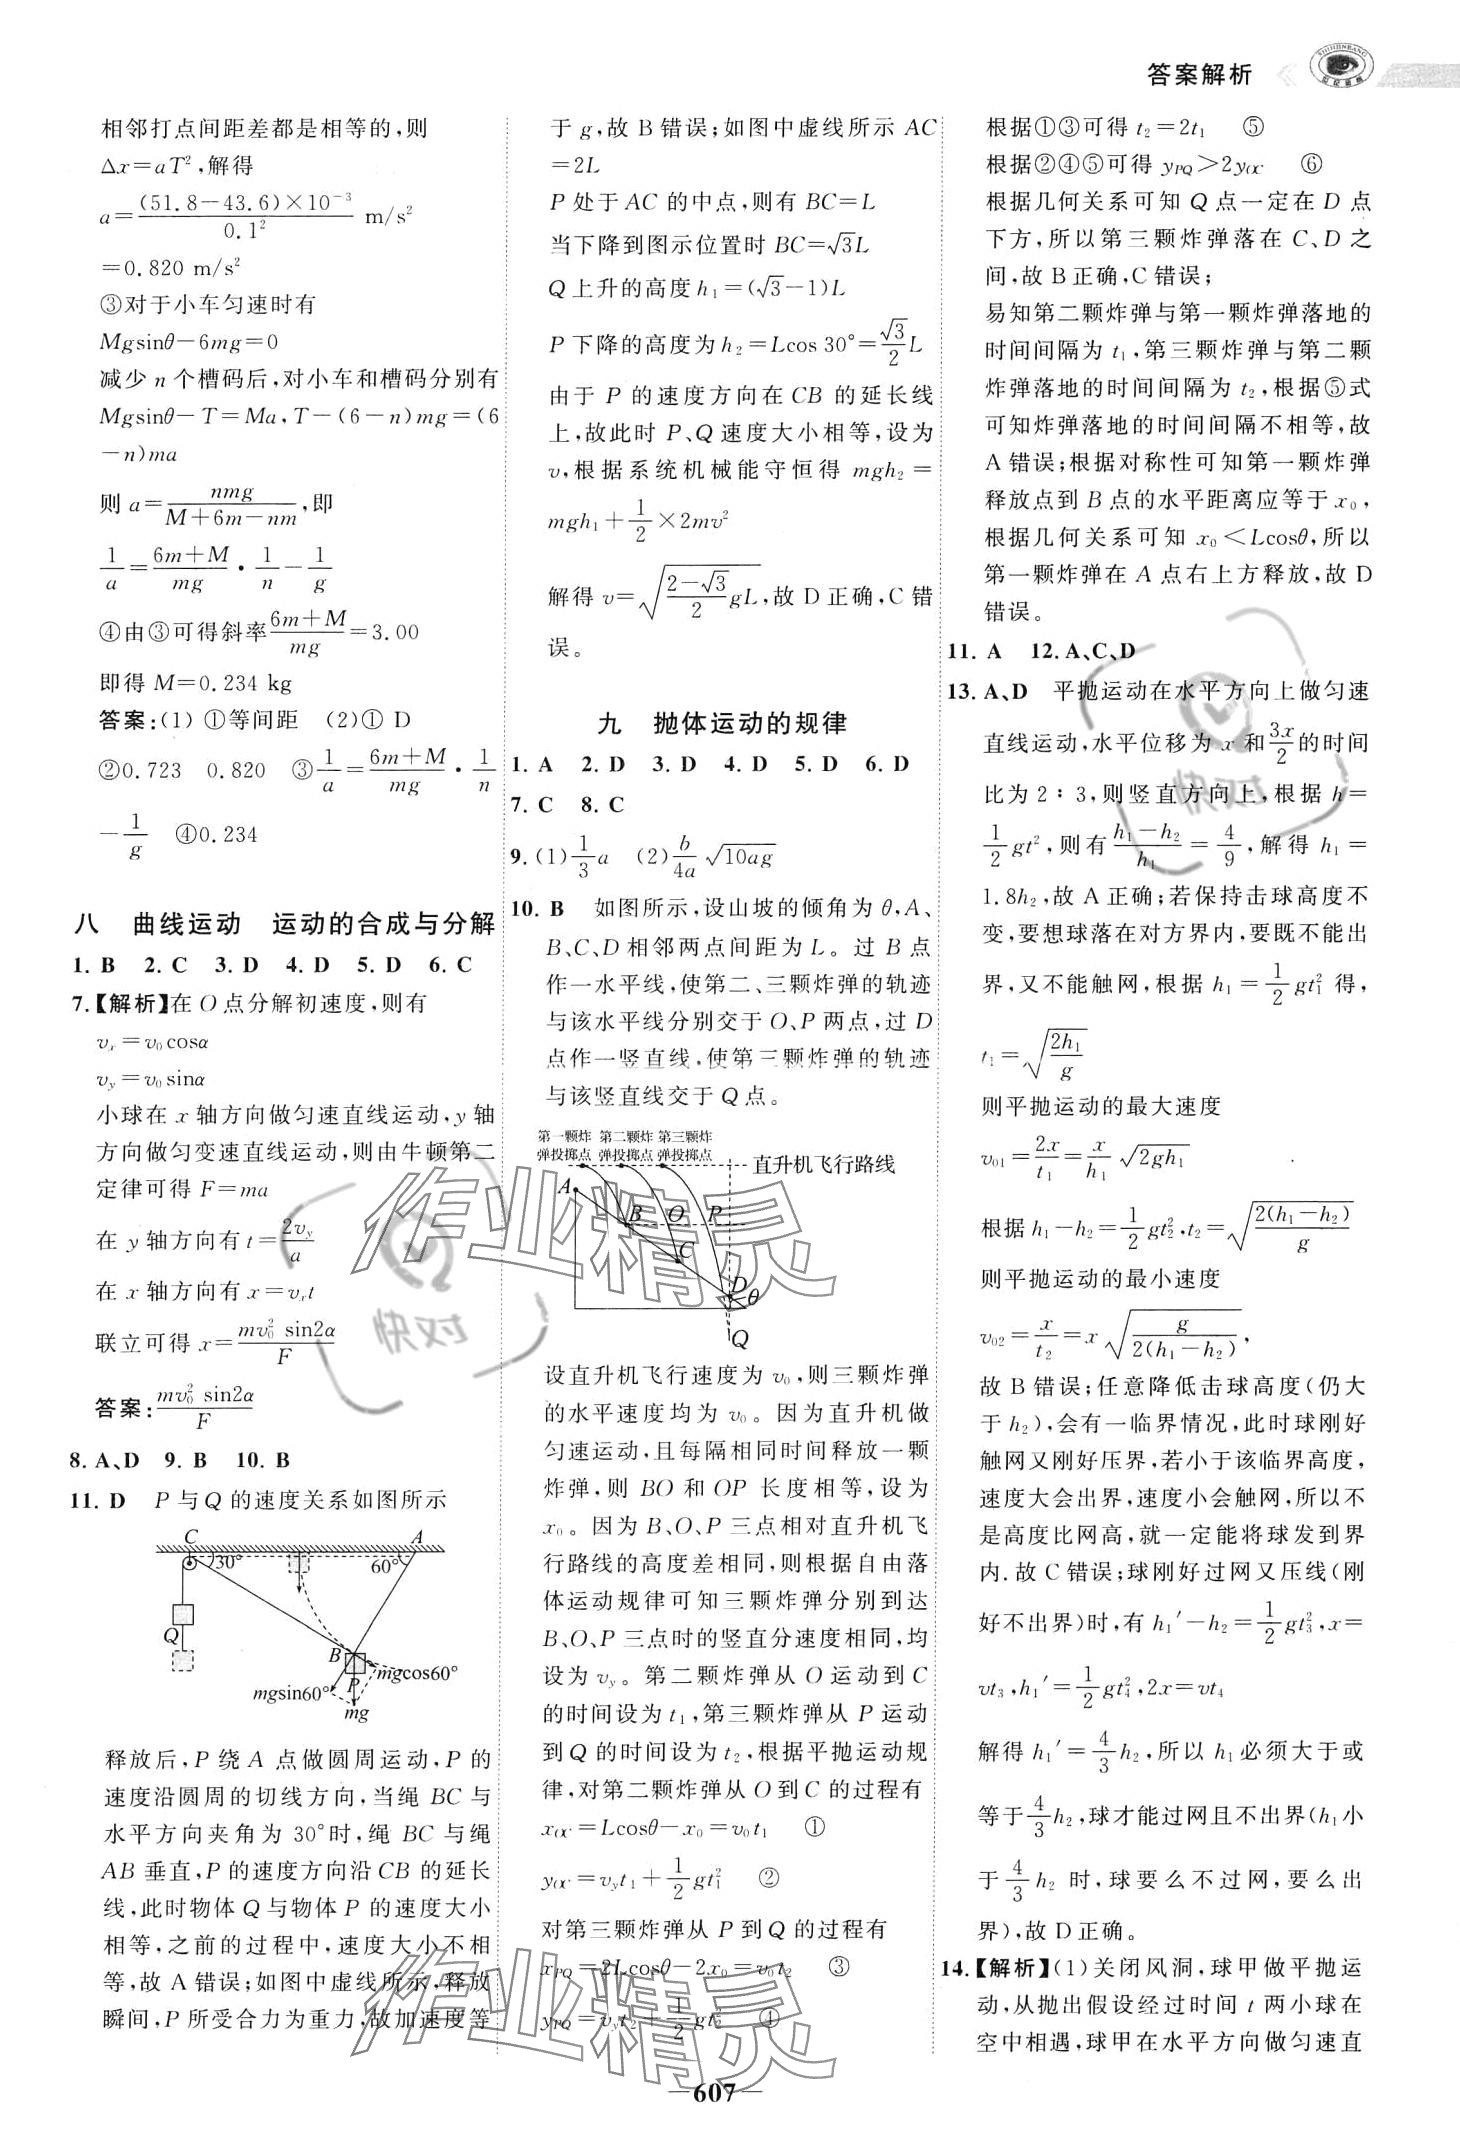 答案解析
相邻打点间距差都是相等的,则
Δx=aT²,解得
a=(51.8−43.6)×10⁻³/0.1² m/s²
=0.820 m/s²
③对于小车匀速时有
Mgsinθ−6mg=0
减少 n 个槽码后,对小车和槽码分别有
Mgsinθ−T=Ma,T−(6−n)mg=(6
−n)ma
则 a=nmg/(M+6m−nm),即
1/a=(6m+M)/mg·1/n−1/g
④由③可得斜率(6m+M)/mg=3.00
即得 M=0.234 kg
答案:(1) ①等间距 (2)① D
②0.723 0.820 ③1/a=(6m+M)/mg·1/n
−1/g ④0.234
八 曲线运动 运动的合成与分解
1. B 2. C 3. D 4. D 5. D 6. C
7.【解析】在 O 点分解初速度,则有
vₓ=v₀cosα
v_y=v₀sinα
小球在 x 轴方向做匀速直线运动,y 轴
方向做匀变速直线运动,则由牛顿第二
定律可得 F=ma
在 y 轴方向有 t=2v_y/a
在 x 轴方向有 x=vₓt
联立可得 x=mv₀² sin2α/F
答案:mv₀² sin2α/F
8. A、D 9. B 10. B
11. D P 与 Q 的速度关系如图所示
C A
30° 60°
Q B
P mgcos60°
mgsin60°
mg
释放后,P 绕 A 点做圆周运动,P 的
速度沿圆周的切线方向,当绳 BC 与
水平方向夹角为 30°时,绳 BC 与绳
AB 垂直,P 的速度方向沿 CB 的延长
线,此时物体 Q 与物体 P 的速度大小
相等,之前的过程中,速度大小不相
等,故 A 错误;如图中虚线所示,释放
瞬间,P 所受合力为重力,故加速度等
于 g,故 B 错误;如图中虚线所示 AC
=2L
P 处于 AC 的中点,则有 BC=L
当下降到图示位置时 BC=√3L
Q 上升的高度 h₁=(√3−1)L
P 下降的高度为 h₂=Lcos 30°=√3/2 L
由于 P 的速度方向在 CB 的延长线
上,故此时 P、Q 速度大小相等,设为
v,根据系统机械能守恒得 mgh₂=
mgh₁+1/2×2mv²
解得 v=√((2−√3)/2 gL),故 D 正确,C 错
误。
九 抛体运动的规律
1. A 2. D 3. D 4. D 5. D 6. D
7. C 8. C
9. (1)1/3 a (2)b/4a √10ag
10. B 如图所示,设山坡的倾角为 θ,A、
B、C、D 相邻两点间距为 L。过 B 点
作一水平线,使第二、三颗炸弹的轨迹
与该水平线分别交于 O、P 两点,过 D
点作一竖直线,使第三颗炸弹的轨迹
与该竖直线交于 Q 点。
第一颗炸 第二颗炸 第三颗炸
弹投掷点 弹投掷点 弹投掷点
直升机飞行路线
A
B O P
C
D θ
Q
设直升机飞行速度为 v₀,则三颗炸弹
的水平速度均为 v₀。因为直升机做
匀速运动,且每隔相同时间释放一颗
炸弹,则 BO 和 OP 长度相等,设为
x₀。因为 B、O、P 三点相对直升机飞
行路线的高度差相同,则根据自由落
体运动规律可知三颗炸弹分别到达
B、O、P 三点时的竖直分速度相同,均
设为 v_y。第二颗炸弹从 O 运动到 C
的时间设为 t₁,第三颗炸弹从 P 运动
到 Q 的时间设为 t₂,根据平抛运动规
律,对第二颗炸弹从 O 到 C 的过程有
x_OC=Lcosθ−x₀=v₀t₁ ①
y_OC=v_yt₁+1/2 gt₁² ②
对第三颗炸弹从 P 到 Q 的过程有
x_PQ=2Lcosθ−2x₀=v₀t₂ ③
y_PQ=v_yt₂+1/2 gt₂² ④
根据①③可得 t₂=2t₁ ⑤
根据②④⑤可得 y_PQ>2y_OC ⑥
根据几何关系可知 Q 点一定在 D 点
下方,所以第三颗炸弹落在 C、D 之
间,故 B 正确,C 错误;
易知第二颗炸弹与第一颗炸弹落地的
时间间隔为 t₁,第三颗炸弹与第二颗
炸弹落地的时间间隔为 t₂,根据⑤式
可知炸弹落地的时间间隔不相等,故
A 错误;根据对称性可知第一颗炸弹
释放点到 B 点的水平距离应等于 x₀,
根据几何关系可知 x₀<Lcosθ,所以
第一颗炸弹在 A 点右上方释放,故 D
错误。
11. A 12. A、C、D
13. A、D 平抛运动在水平方向上做匀速
直线运动,水平位移为 x 和3x/2的时间
比为 2∶3,则竖直方向上,根据 h=
1/2 gt²,则有(h₁−h₂)/h₁=4/9,解得 h₁=
1.8h₂,故 A 正确;若保持击球高度不
变,要想球落在对方界内,要既不能出
界,又不能触网,根据 h₁=1/2 gt₁² 得,
t₁=√(2h₁/g)
则平抛运动的最大速度
v₀₁=2x/t₁=x/h₁ √2gh₁
根据 h₁−h₂=1/2 gt₂²,t₂=√(2(h₁−h₂)/g)
则平抛运动的最小速度
v₀₂=x/t₂=x√(g/2(h₁−h₂)),
故 B 错误;任意降低击球高度(仍大
于 h₂),会有一临界情况,此时球刚好
触网又刚好压界,若小于该临界高度,
速度大会出界,速度小会触网,所以不
是高度比网高,就一定能将球发到界
内.故 C 错误;球刚好过网又压线(刚
好不出界)时,有 h₁′−h₂=1/2 gt₃²,x=
vt₃,h₁′=1/2 gt₄²,2x=vt₄
解得 h₁′=4/3 h₂,所以 h₁ 必须大于或
等于4/3 h₂,球才能过网且不出界(h₁小
于4/3 h₂ 时,球要么不过网,要么出
界),故 D 正确。
14.【解析】(1)关闭风洞,球甲做平抛运
动,从抛出假设经过时间 t 两小球在
空中相遇,球甲在水平方向做匀速直
607
作业精灵
作业精灵
快对
快对